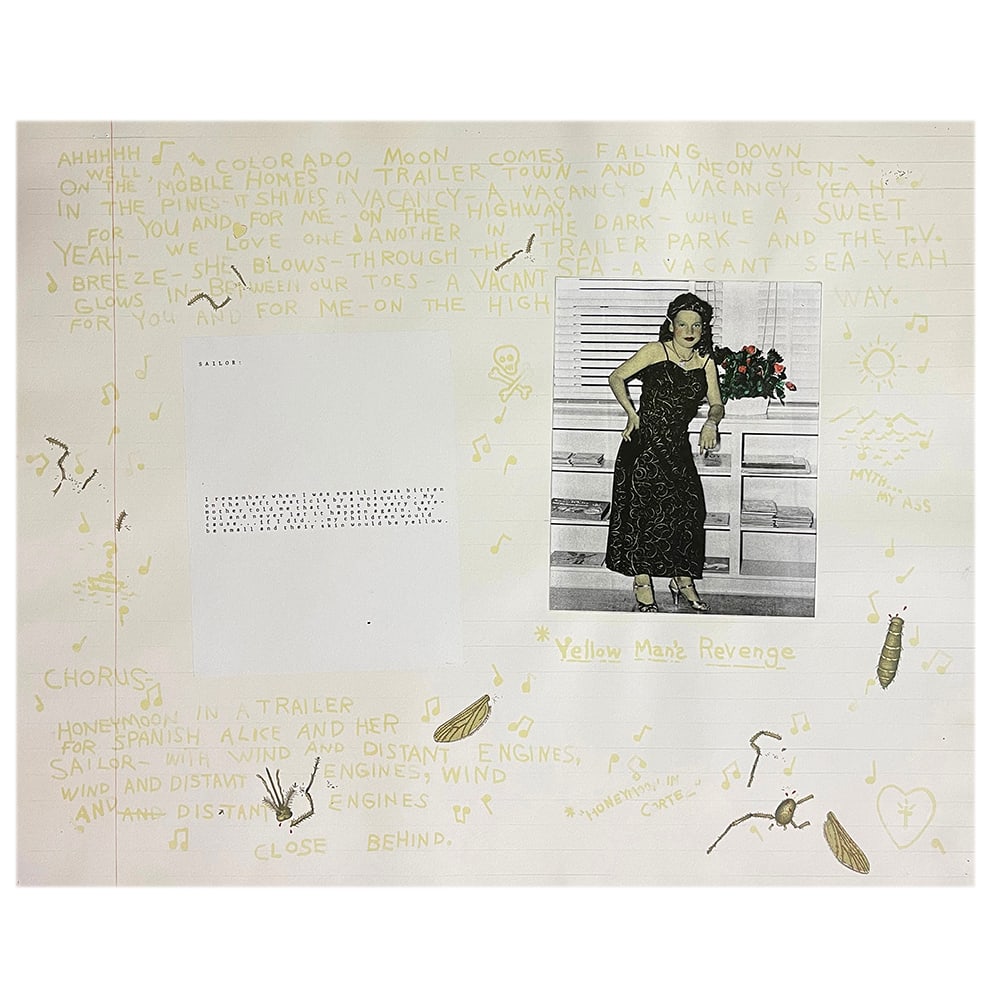 AHHHHH
WELL, A COLORADO MOON COMES FALLING DOWN
ON THE MOBILE HOMES IN TRAILER TOWN- AND A NEON SIGN-
IN THE PINES-IT SHINES A VACANCY- A VACANCY, A VACANCY, YEAH
FOR YOU AND FOR ME-ON THE HIGHWAY.
YEAH- WE LOVE ONE ANOTHER IN THE DARK- WHILE A SWEET
BREEZE-SHE BLOWS-THROUGH THE TRAILER PARK- AND THE T.V.
GLOWS IN-BETWEEN OUR TOES-A VACANT SEA-A VACANT SEA-YEAH
FOR YOU AND FOR ME-ON THE HIGH WAY.
SAILOR:
I remember when I was small I was bitten
in the left testicle by a mosquito. My
mother told me that I must be very care-
ful and never let it happen again, be-
cause...if I did...my children would
be small and their skin would be yellow.
MYTH...
MY ASS
*Yellow Man's Revenge
CHORUS-
HONEYMOON IN A TRAILER
FOR SPANISH ALICE AND HER
SAILOR- WITH WIND AND DISTANT ENGINES,
WIND AND DISTANT ENGINES, WIND
AND AND DISTANT ENGINES
CLOSE BEHIND.
*"HONEYMOON IN
CORTEZ"